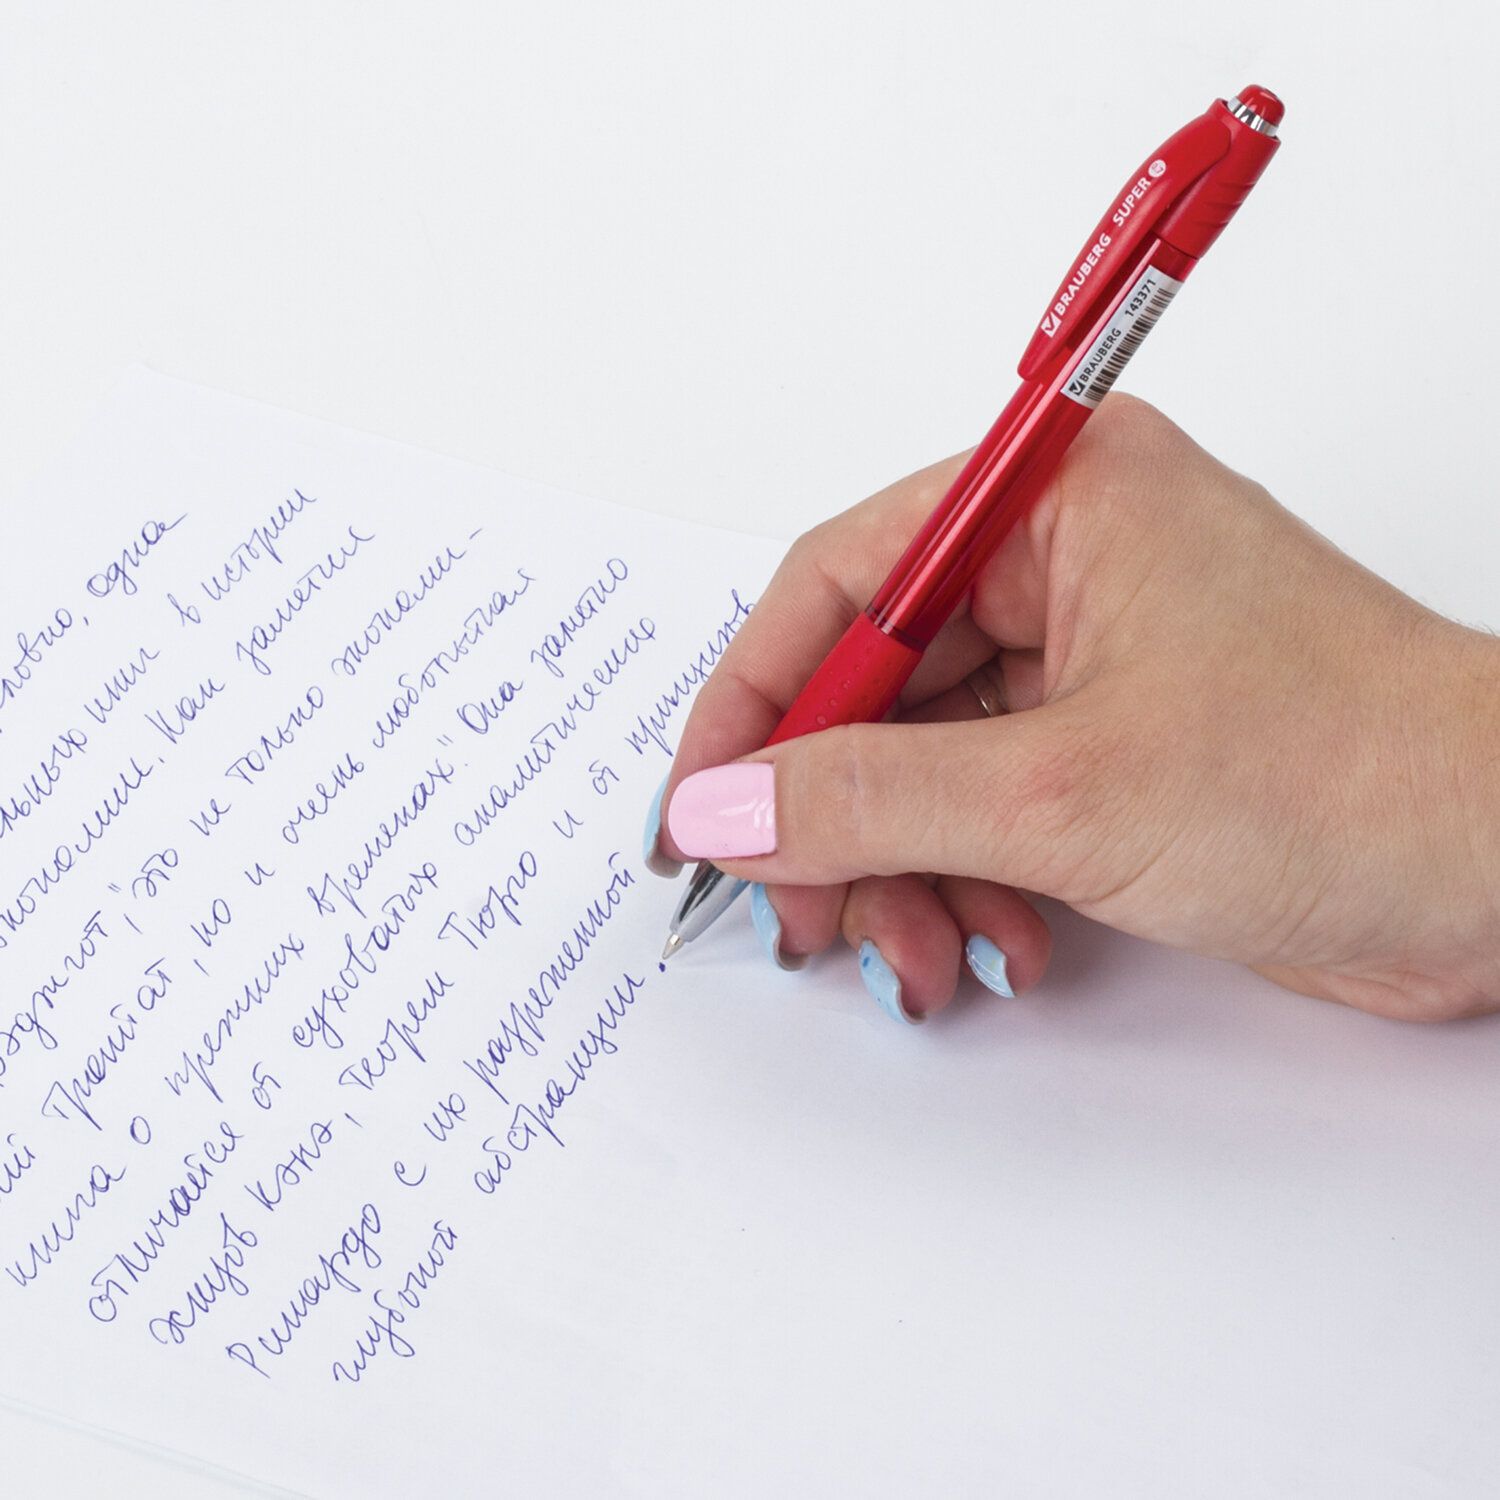 BRAUBERG SUPER
BRAUBERG 143371
словно, одна
льных книг в истории
экономии. Как заметил
Бэджгот, "это не только экономи-
ий трактат, но и очень любопытная
книга о прежних временах". Она заметно
отличается от суховатых аналитических
эскизов Кэнэ, теорем Тюрго и от принципов
Рикардо с их разреженной
глубокой абстракции.